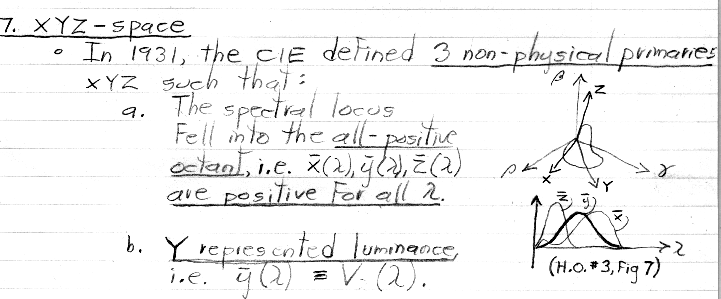 7. XYZ-space
• In 1931, the CIE defined 3 non-physical primaries
XYZ such that:
a. The spectral locus
Fell into the all-positive
octant, i.e. x̄(λ), ȳ(λ), z̄(λ)
are positive For all λ.
b. Y represented luminance,
i.e. ȳ(λ) ≡ V(λ).
β
Z
ρ
X
Y
γ
z̄ ȳ x̄
λ
(H.O.#3, Fig 7)